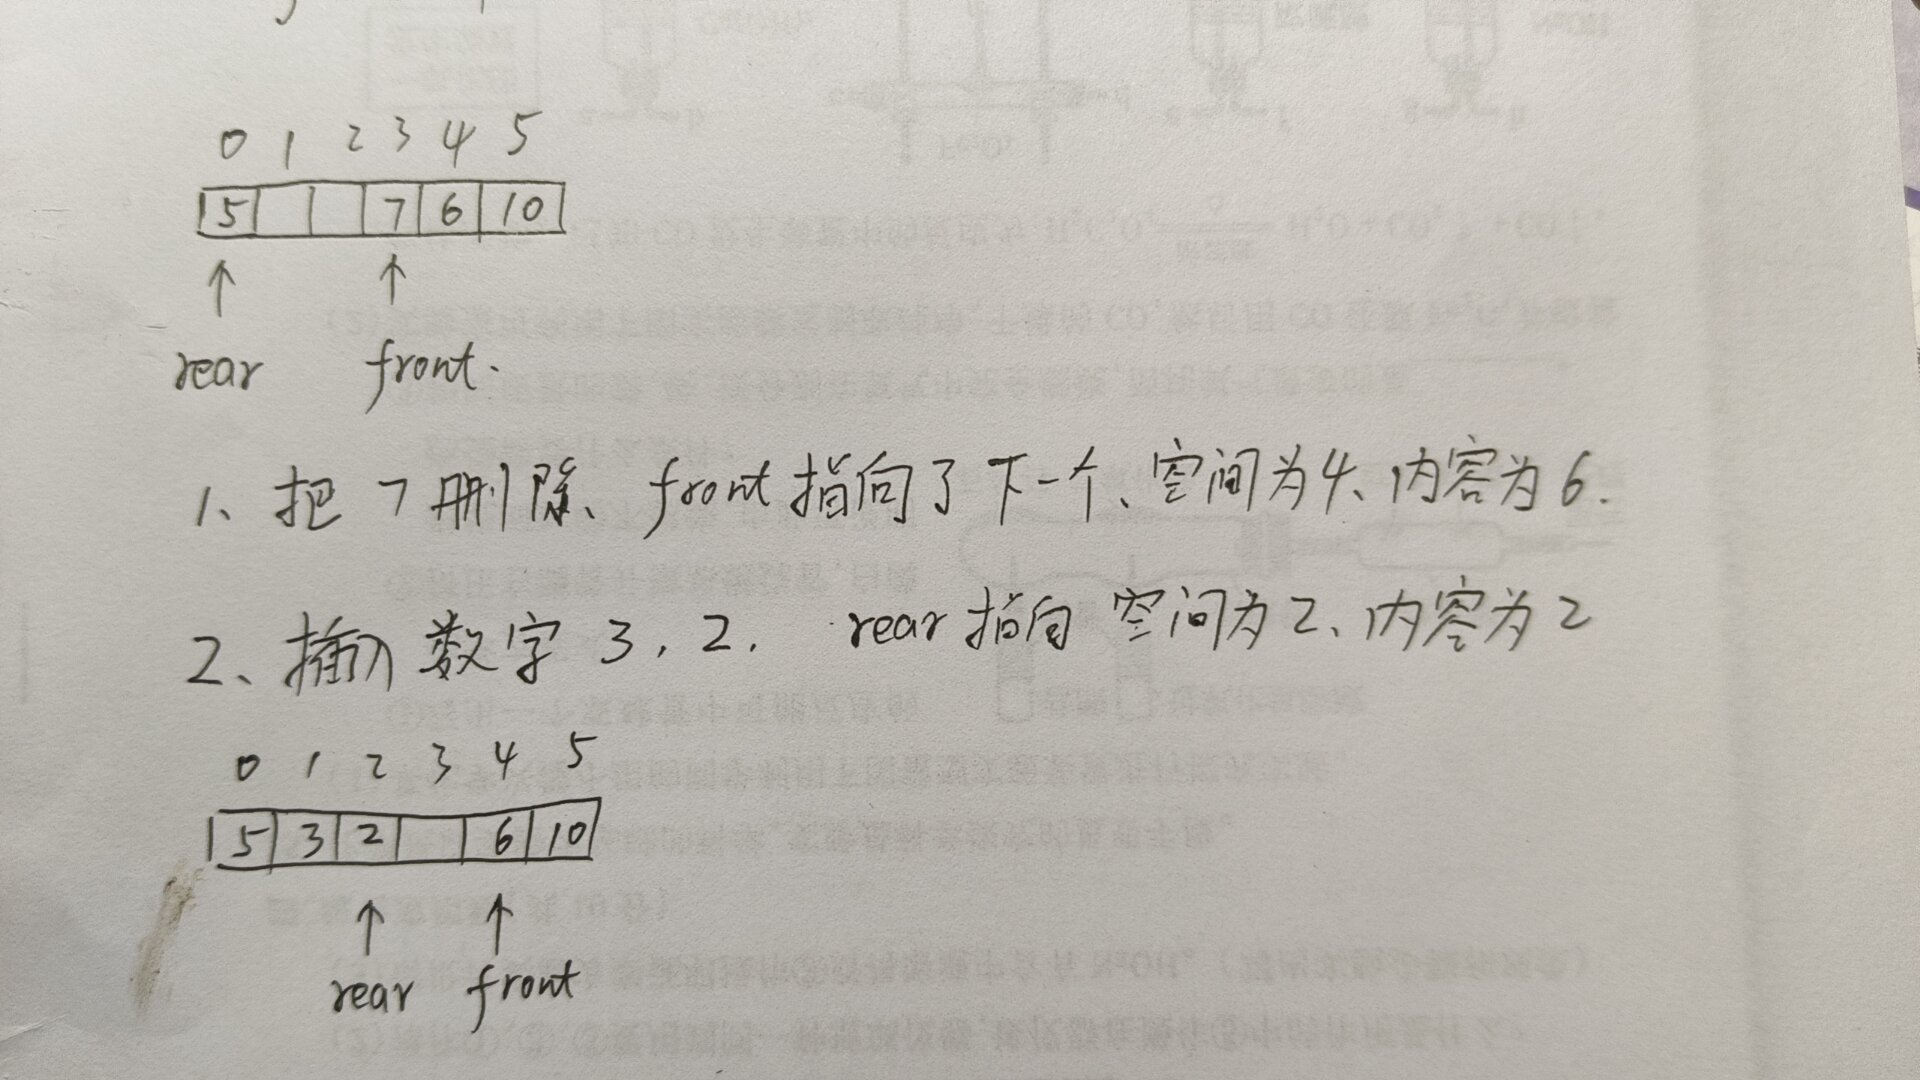 0 1 2 3 4 5
5 7 6 10
rear front.
1、把7删除、front指向了下一个、空间为4、内容为6.
2、插入数字3,2. rear指向 空间为2、内容为2
0 1 2 3 4 5
5 3 2 6 10
rear front